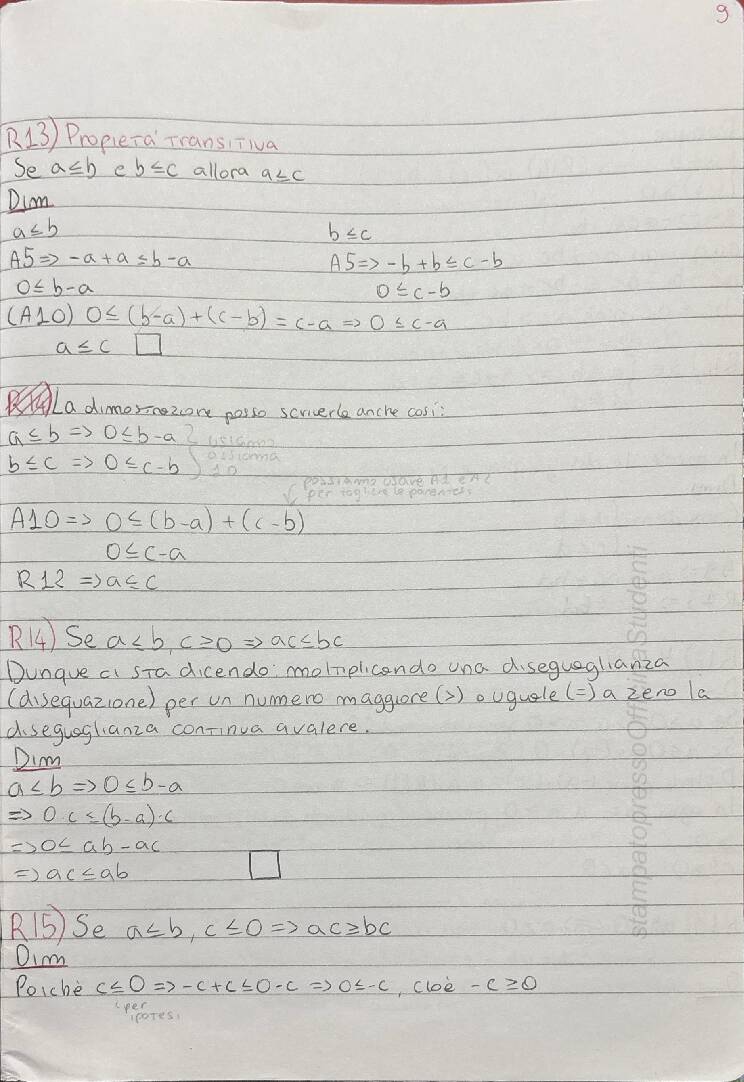 9
R13) Propietá transitiva
Se a≤b e b≤c allora a≤c
Dim
a≤b b≤c
A5=> -a+a≤b-a A5=> -b+b≤c-b
0≤b-a 0≤c-b
(A10) 0≤(b-a)+(c-b)=c-a => 0≤c-a
a≤c □
R14) La dimostrazione posso scriverla anche così:
a≤b => 0≤b-a usiamo
b≤c => 0≤c-b assioma
10
possiamo usare A1 e A2
per togliere le parentesi
A10=> 0≤(b-a)+(c-b)
0≤c-a
R12 => a≤c
R14) Se a<b, c≥0 => ac≤bc
Dunque ci sta dicendo: moltiplicando una diseguaglianza
(disequazione) per un numero maggiore (>) o uguale (=) a zero la
diseguaglianza continua a valere.
Dim
a<b => 0≤b-a
=> 0·c≤(b-a)·c
=> 0≤ab-ac
=> ac≤ab □
R15) Se a≤b, c≤0 => ac≥bc
Dim
Poichè c≤0 => -c+c≤0-c => 0≤-c, cioè -c≥0
per
ipotesi
stampatopressoOfficinaStudenti